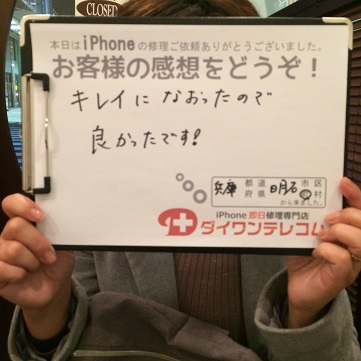 CLOSED
本日は iPhone の修理ご依頼ありがとうございました。
お客様の感想をどうぞ!
キレイになおったので
良かったです!
兵庫 都道府県 明石 市区町村
から来ました。
iPhone 即日修理専門店
ダイワンテレコム